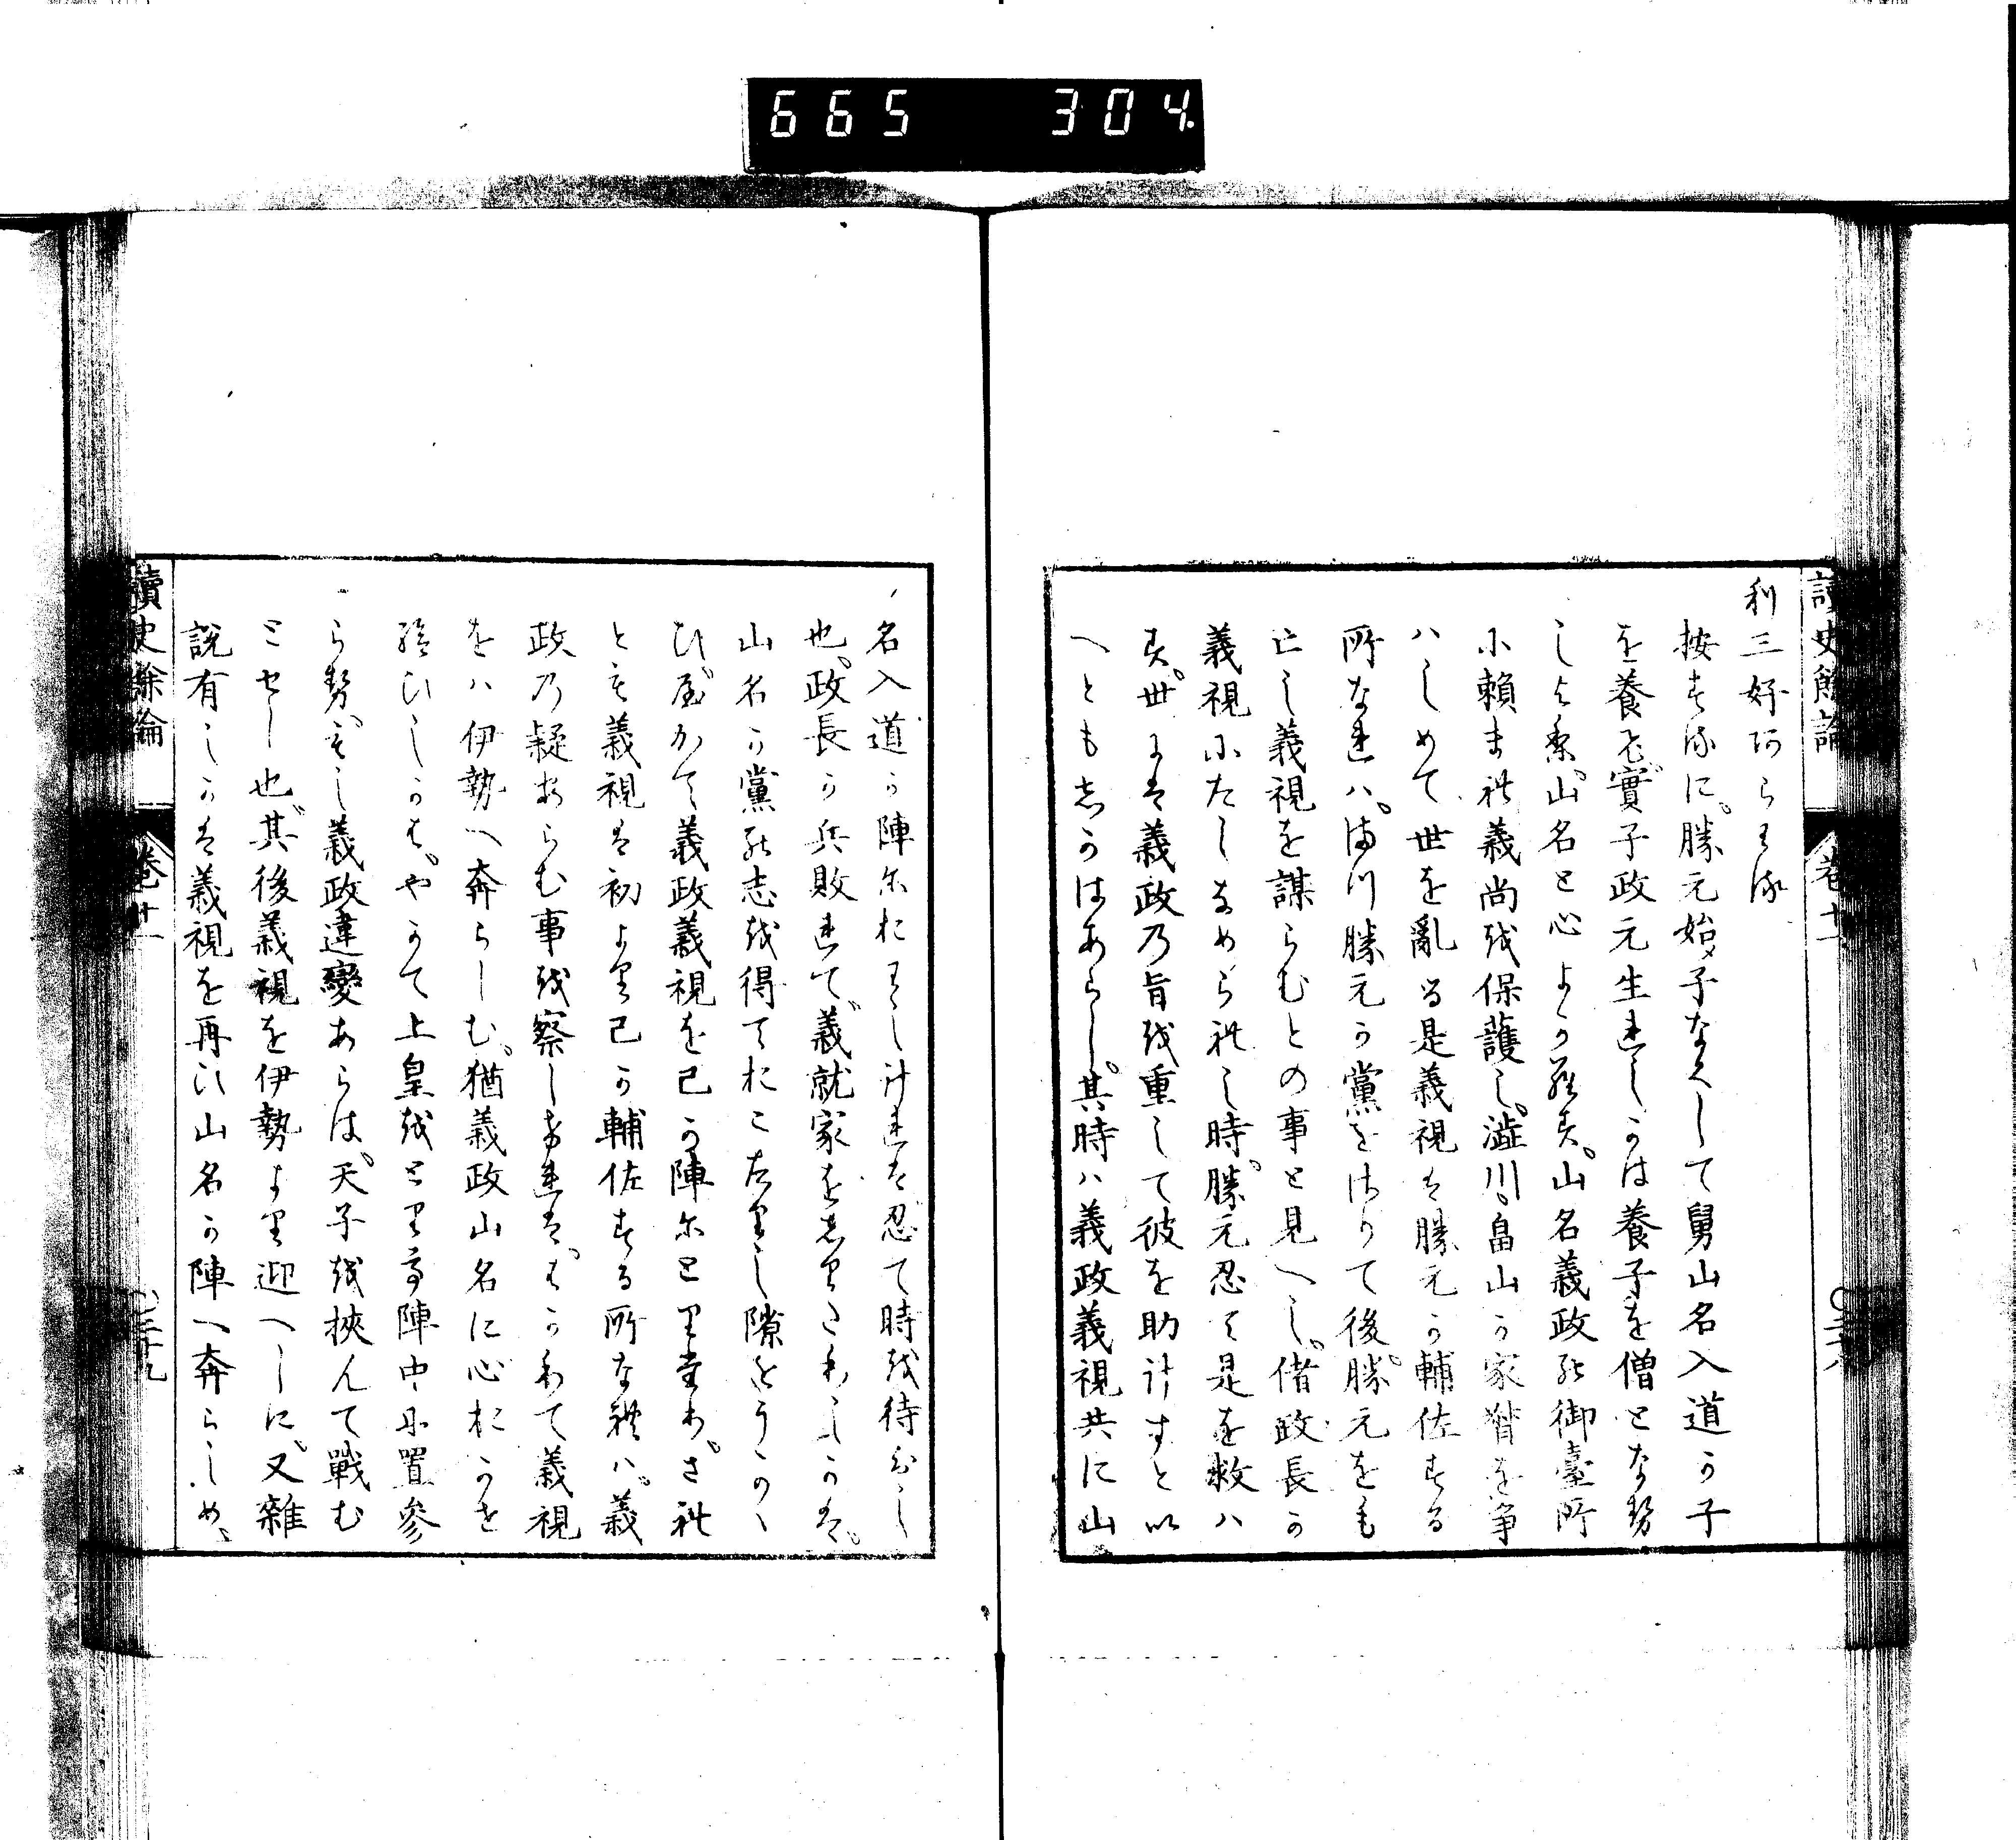 665 304
讀史餘論 卷十一 〇三十八
利三好にらる
按するに。勝元始子なくして舅山名入道か子
を養ひ。實子政元生れしかは養子を僧となせ
しより。山名と心よからす。山名義政の御臺所
に賴まれ義尚を保護し。澁川。畠山か家督を争
ハしめて世を亂る是義視は勝元か輔佐する
所なれハ。勝元か黨をはりて後。勝元をも
亡し義視を謀らむとの事と見へし。偖政長か
義視にたしなめられし時。勝元忍て是を救ハ
す。世には義政乃旨を重して彼を助けすと以
へとも志かはあらし。其時ハ義政義視共に山
名入道か陣におはし計れは忍て時を待ちし
也。政長か兵敗れて。義就家をしりされしかは。
山名か黨の志を得ておこたりし隙をうかゝ
ひ。やかて義政義視を己か陣にとり
とも義視は初より己か輔佐する所なれハ。義
政乃疑あらむ事を察しけれは。はかりて義視
をハ伊勢へ奔らしむ。猶義政山名に心おかせ
給ひしかは。やかて上皇をとり陣中に置參
らせ。もし義政違變あらは。天子を挾んて戰む
とせし也。其後義視を伊勢より迎へしに。又雜
說有しかは義視を再ひ山名か陣へ奔らしめ。
讀史餘論 卷十一 〇三十九